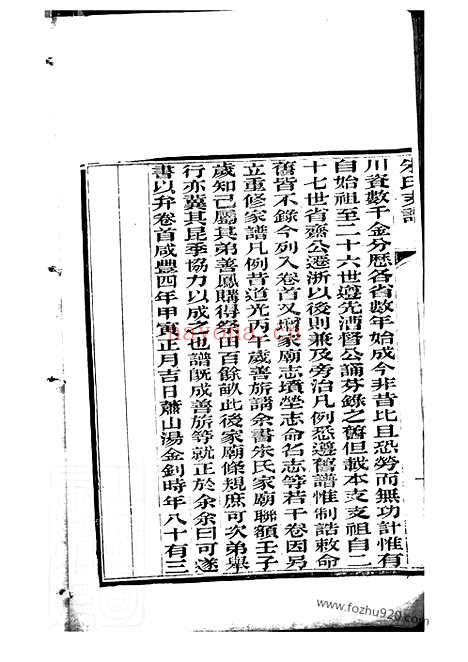 朱氏支譜
川資數千金分歷各省數年始成今非昔比且恐勞而無功計惟有
自始祖至二十六世遵先漕督公誦芬錄之舊但載本支支祖自二
十七世省齋公遷浙以後則兼及旁治凡例悉遵舊譜惟制誥敕命
舊皆不錄今列入卷首又增家廟志墳塋志命名志等若干卷因另
立重修家譜凡例昔道光丙午歲善旂請余書朱氏家廟聯額壬子
歲知己屬其弟善鳳購得祭田百餘畝此後家廟條規庶可次弟舉
行亦冀其昆季協力以成之也譜既成善旂等就正於余余曰可遂
書以弁卷首咸豐四年甲寅正月吉日蕭山湯金釗時年八十有三
nayona.cn
www.fozhu920.com